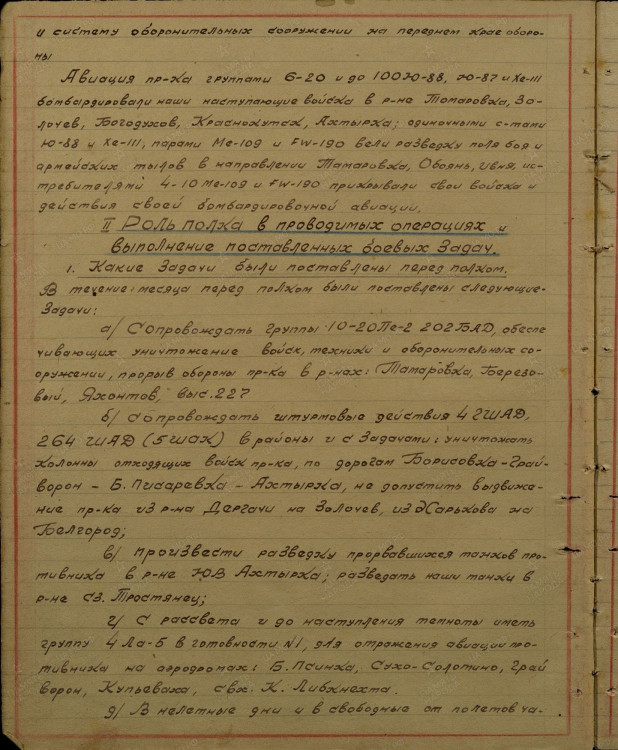 и систему оборонительных сооружений на переднем крае оборо-
ны
Авиация пр-ка группами 6-20 и до 100 Ю-88, Ю-87 и Хе-111
бомбардировали наши наступающие войска в р-не Томаровка, Зо-
лочев, Богодухов, Краснокутск, Ахтырка; одиночными с-тами
Ю-88 и Хе-111, парами Ме-109 и FW-190 вели разведку поля боя и
армейских тылов в направлении Тамаровка, Обоянь, Ивня, ис-
требителями 4-10 Ме-109 и FW-190 прикрывали свои войска и
действия своей бомбардировочной авиации.
II Роль полка в проводимых операциях и
выполнение поставленных боевых задач.
1. Какие задачи были поставлены перед полком.
В течение месяца перед полком были поставлены следующие-
задачи:
а/ Сопровождать группы 10-20 Пе-2 202 БАД, обеспе
чивающих уничтожение войск, техники и оборонительных со-
оружении, прорыв обороны пр-ка в р-нах: Тамаровка, Березо-
вый, Яхонтов, выс. 227
б/ сопровождать штурмовые действия 4 ГШАД,
264 ШАД (5 ШАК) в районы и с задачами: уничтожать
колонны отходящих войск пр-ка, по дорогам Борисовка-Грай-
ворон - Б. Писаревка - Ахтырка, не допустить выдвиже-
ние пр-ка из р-на Дергачи на Золочев, из Харькова на
Белгород;
в/ произвести разведку прорвавшихся танков про-
тивника в р-не ЮВ Ахтырка; разведать наши танки в
р-не сз. Тростянец;
г/ С рассвета и до наступления темноты иметь
группу 4 Ла-5 в готовности N1, для отражения авиации про-
тивника на аэродромах: Б. Псинка, Сухо-Солотино, Грай
ворон, Купьеваха, свх. К. Либкнехта.
д/ В нелетные дни и в свободные от полетов ча-